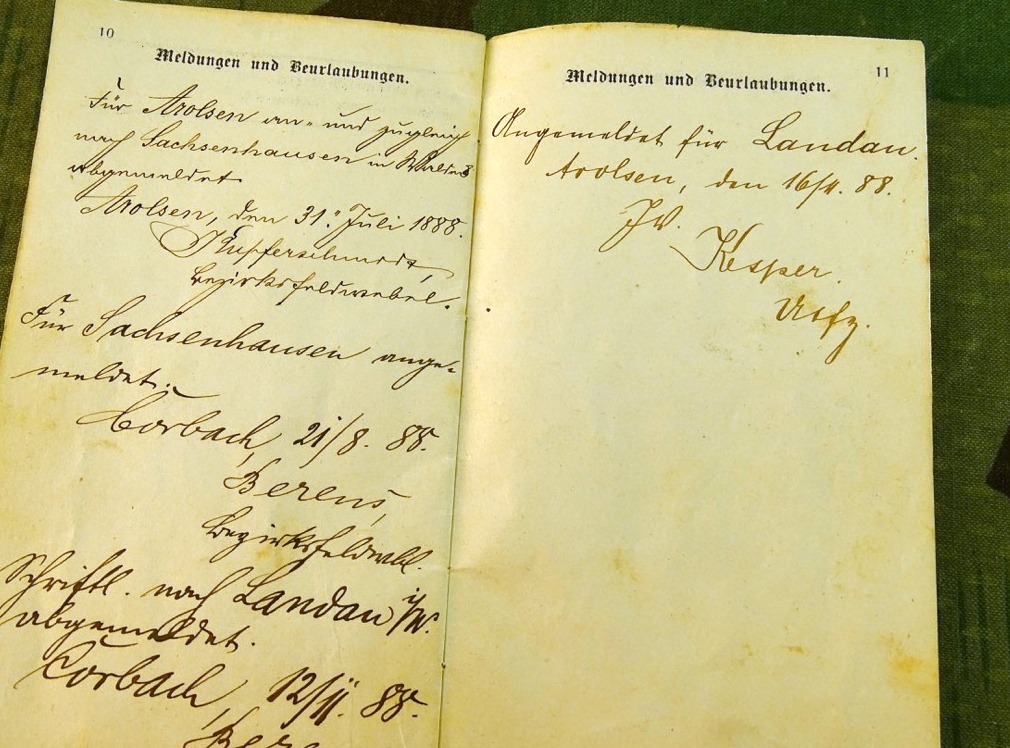 10
Meldungen und Beurlaubungen.
Für Arolsen an- und zugleich
nach Sachsenhausen in Waldeck
abgemeldet.
Arolsen, den 31. Juli 1888.
Kupferschmidt,
Bezirksfeldwebel.
Für Sachsenhausen ange-
meldet.
Corbach, 21/8. 88.
Berens,
Bezirksfeldwbl.
Schriftl. nach Landau i/W.
abgemeldet.
Corbach, 12/11. 88.
11
Meldungen und Beurlaubungen.
Angemeldet für Landau.
Arolsen, den 16/11. 88.
Kesper.
Utfz.